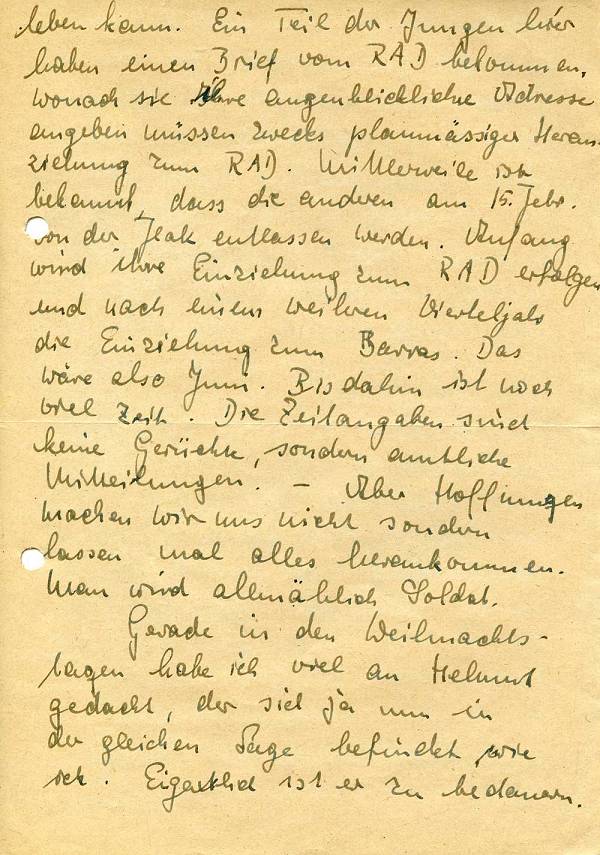 leben kann. Ein Teil der Jungen hier
haben einen Brief vom RAD bekommen,
wonach sie Ihre augenblickliche Adresse
angeben müssen zwecks planmässiger Heran-
ziehung zum RAD. Mittlerweile ist
bekannt, dass die anderen am 15. Febr.
von der Flak entlassen werden. Anfang
wird ihre Einziehung zum RAD erfolgen
und nach einem weiteren Vierteljahr
die Einziehung zum Barras. Das
wäre also Juni. Bis dahin ist noch
viel Zeit. Die Zeitangaben sind
keine Gerüchte, sondern amtliche
Mitteilungen. – Aber Hoffnungen
machen wir uns nicht sondern
lassen mal alles herankommen.
Man wird allmählich Soldat.
Gerade in den Weihnachts-
tagen habe ich viel an Helmut
gedacht, der sich ja nun in
der gleichen Lage befindet, wie
ich. Eigentlich ist er zu bedauern.